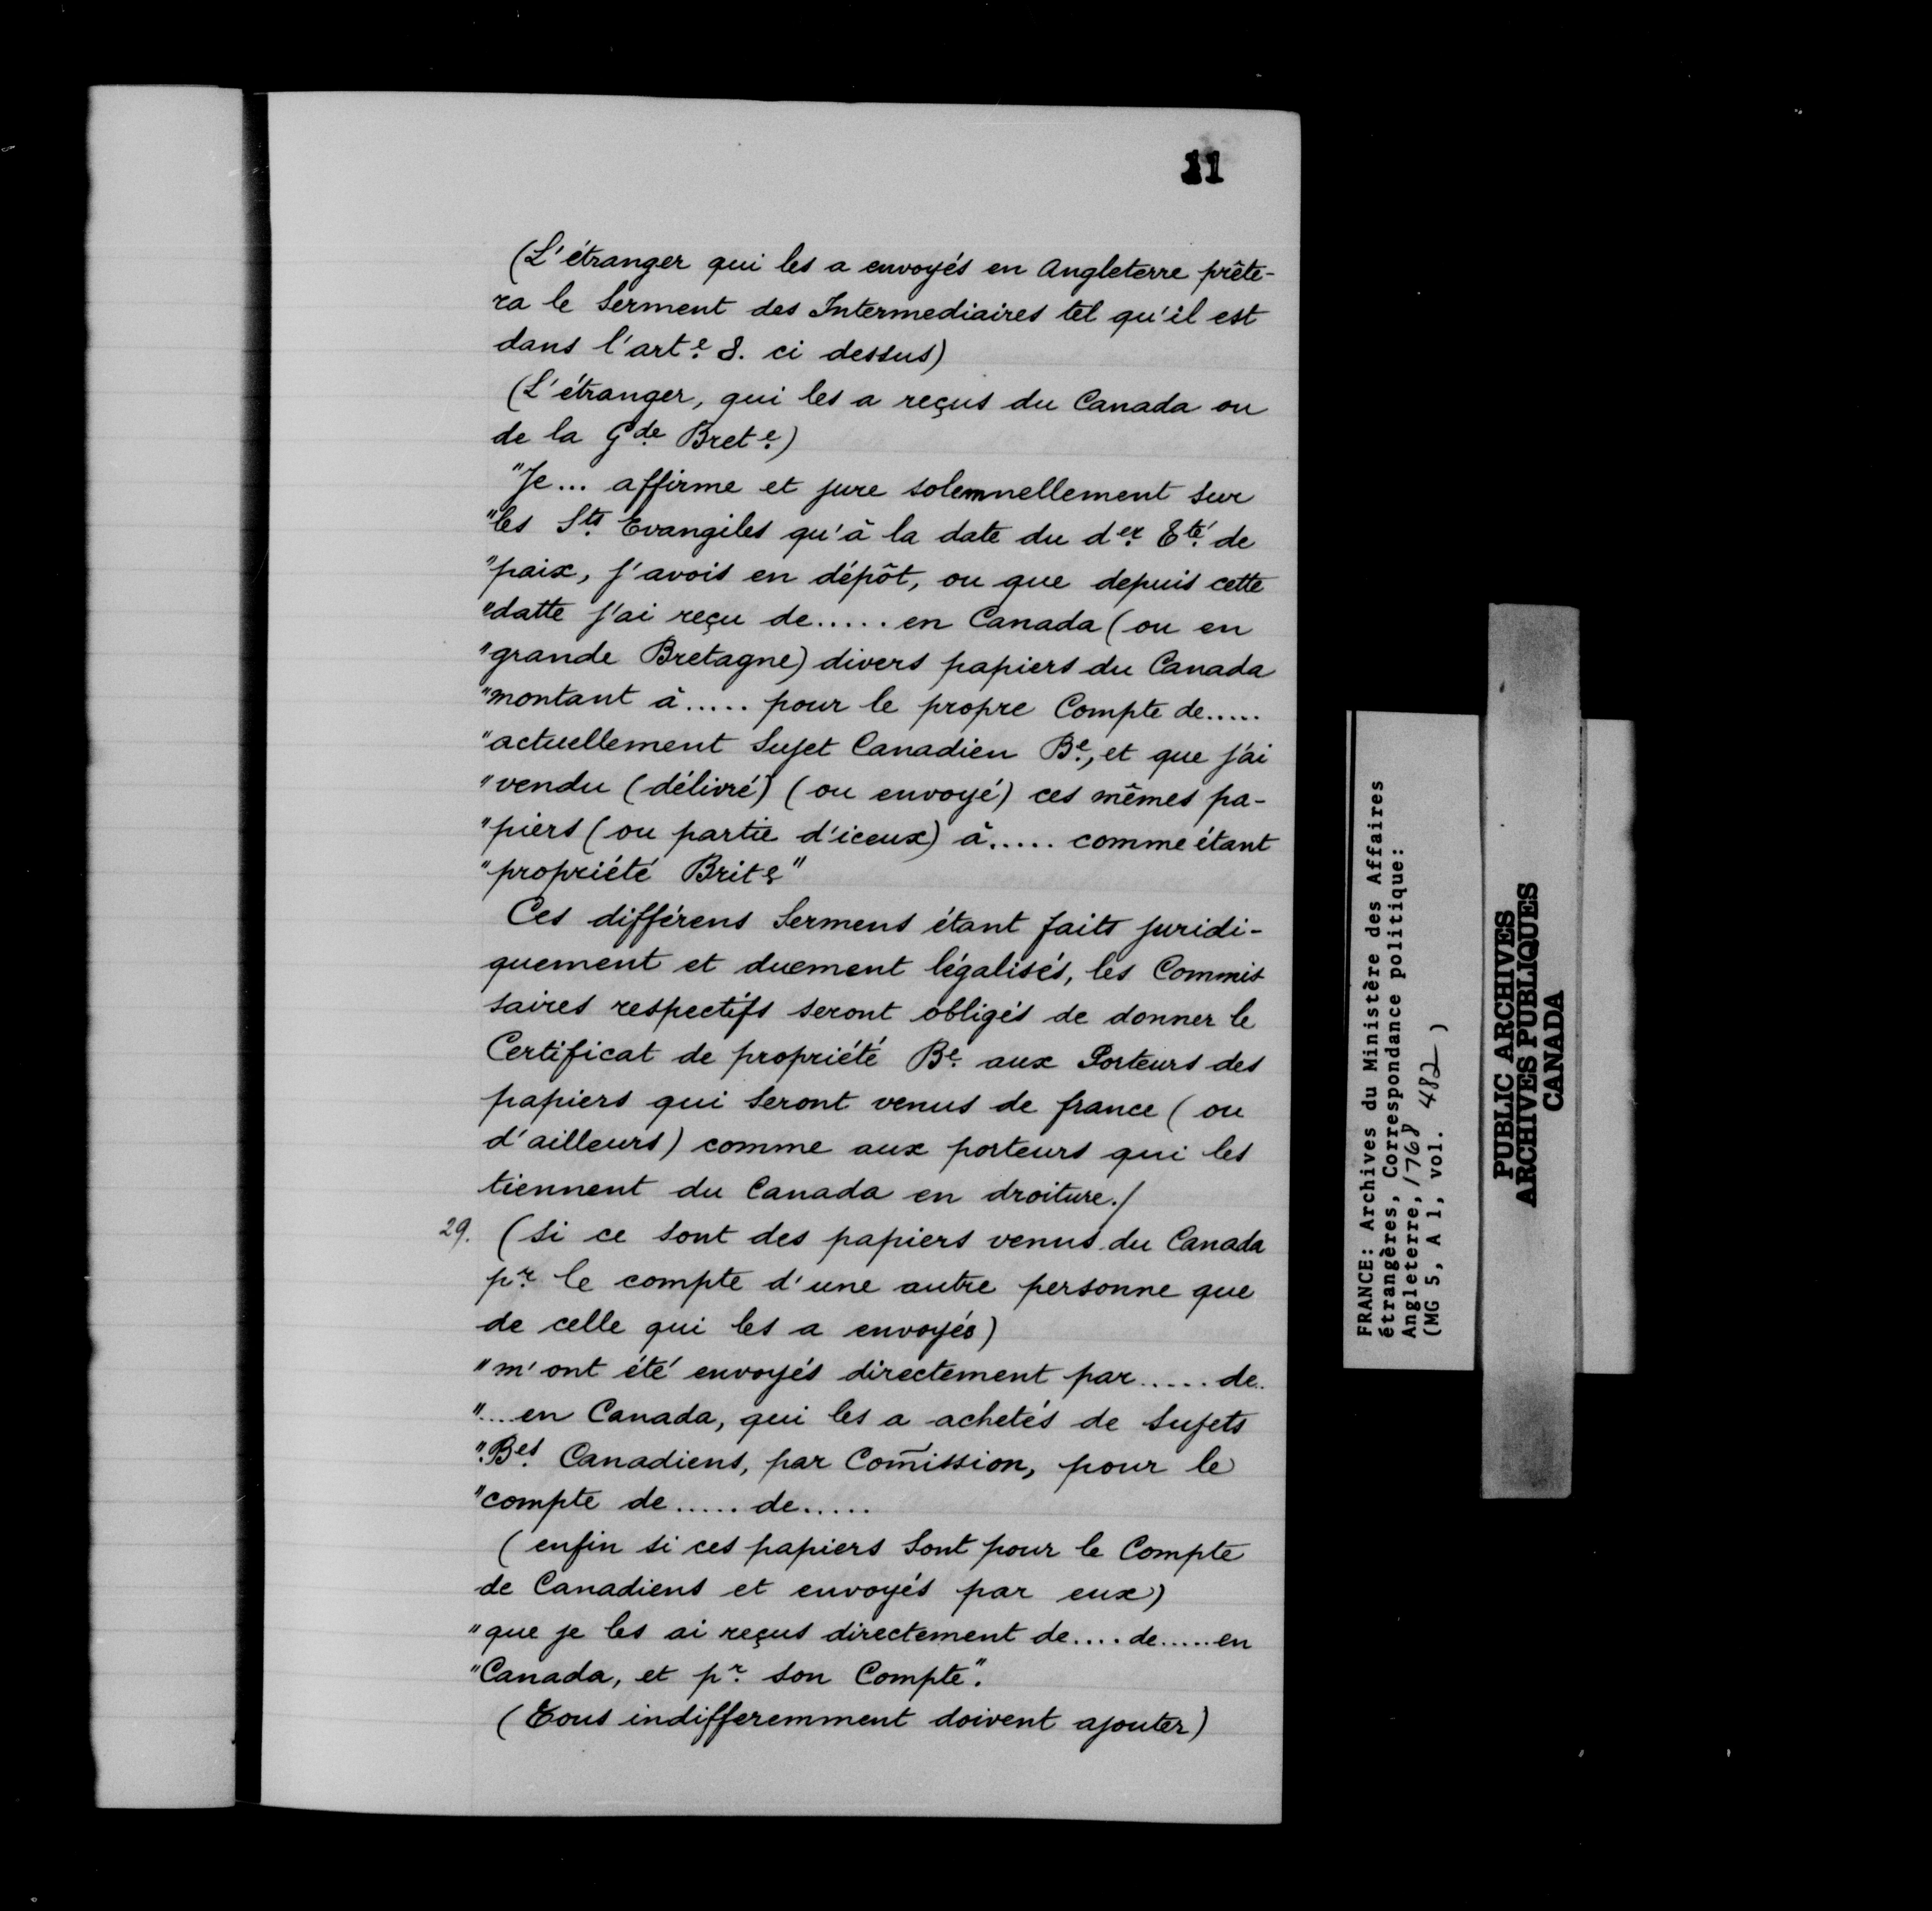 11
(L'étranger qui les a envoyés en Angleterre prête-
ra le Serment des Intermediaires tel qu'il est
dans l'art.e 8. ci dessus)
(L'étranger, qui les a reçus du Canada ou
de la Gde Brete)
"Je... affirme et jure solemnellement sur
"les Sts Evangiles qu'à la date du der Tté de
"paix, j'avois en dépôt, ou que depuis cette
"datte j'ai reçu de..... en Canada (ou en
"grande Bretagne) divers papiers du Canada
"montant à..... pour le propre Compte de.....
"actuellement Sujet Canadien Be, et que j'ai
"vendu (délivré) (ou envoyé) ces mêmes pa-
"piers (ou partie d'iceux) à..... comme étant
"propriété Brite"
Ces différens Sermens étant faits juridi-
quement et duement légalisés, les Commis
saires respectifs seront obligés de donner le
Certificat de propriété Be aux Porteurs des
papiers qui seront venus de france (ou
d'ailleurs) comme aux porteurs qui les
tiennent du Canada en droiture./
29. (Si ce sont des papiers venus du Canada
pr le compte d'une autre personne que
de celle qui les a envoyés)
"m'ont été envoyés directement par..... de..
"...en Canada, qui les a achetés de Sujets
"Bes Canadiens, par Com̃ission, pour le
"compte de..... de.....
(enfin si ces papiers sont pour le Compte
de Canadiens et envoyés par eux)
"que je les ai reçus directement de.... de..... en
"Canada, et pr son Compte".
(Tous indifferemment doivent ajouter)
FRANCE: Archives du Ministère des Affaires
étrangères, Correspondance politique:
Angleterre, 1768
(MG 5, A 1, vol. 482)
PUBLIC ARCHIVES
ARCHIVES PUBLIQUES
CANADA